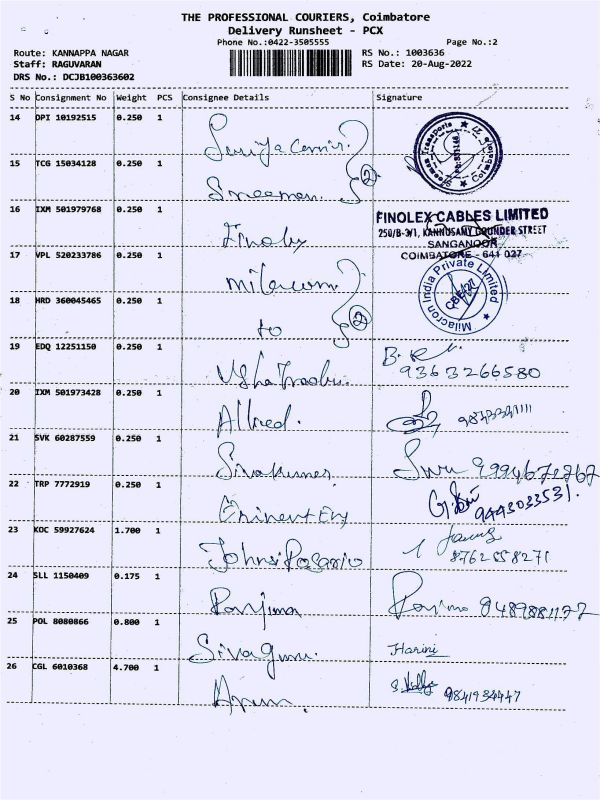 THE PROFESSIONAL COURIERS, Coimbatore
Delivery Runsheet - PCX
Phone No.:0422-3505555
Page No.:2
Route: KANNAPPA NAGAR
RS No.: 1003636
Staff: RAGUVARAN
RS Date: 20-Aug-2022
DRS No.: DCJB100363602
S No Consignment No Weight PCS Consignee Details Signature
14 DPI 10192515 0.250 1
15 TCG 15034128 0.250 1
Sreeman 2
16 IXM 501979768 0.250 1
FINOLEX CABLES LIMITED
250/B-3/1, KANNUSAMY GOUNDER STREET
SANGANOOR
COIMBATORE - 641 027
Finolex
17 VPL 520233786 0.250 1
Milacron
Milacron India Private Limited
18 HRD 360045465 0.250 1
to 2
19 EDQ 12251150 0.250 1
Usha Prabu. 9363266580
20 IXM 501973428 0.250 1
Alfred.
21 SVK 60287559 0.250 1
Sivakumar
22 TRP 7772919 0.250 1
9443033531.
23 KOC 59927624 1.700 1
Johnsi Rosario
24 SLL 1150409 0.175 1
Ranjima
25 POL 8080866 0.800 1
Sivaguru. Harini
26 CGL 6010368 4.700 1
Arun. 9841934447